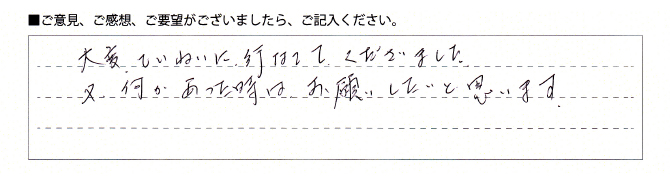 ■ご意見、ご感想、ご要望がございましたら、ご記入ください。
大変ていねいに行なって下ださいました
又、何かあった時は、お願いしたいと思います。